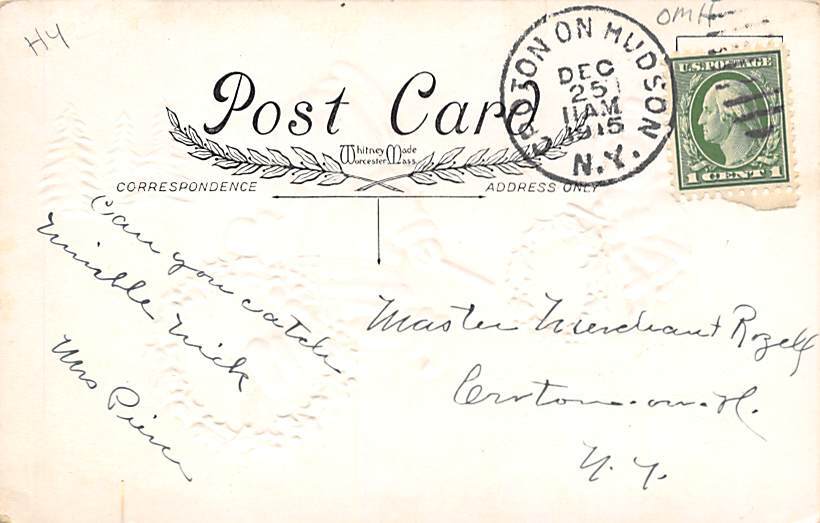 H4
OMH
Post Card
Whitney Made
Worcester Mass.
CORRESPONDENCE
ADDRESS ONLY
CROTON ON HUDSON
DEC
25
11 AM
1915
N.Y.
U.S. POSTAGE
1 CENT 1
Can you catch
nimble Nick
Mrs Pierce
Master Merchant Rozell
Croton-on-H.
N. Y.